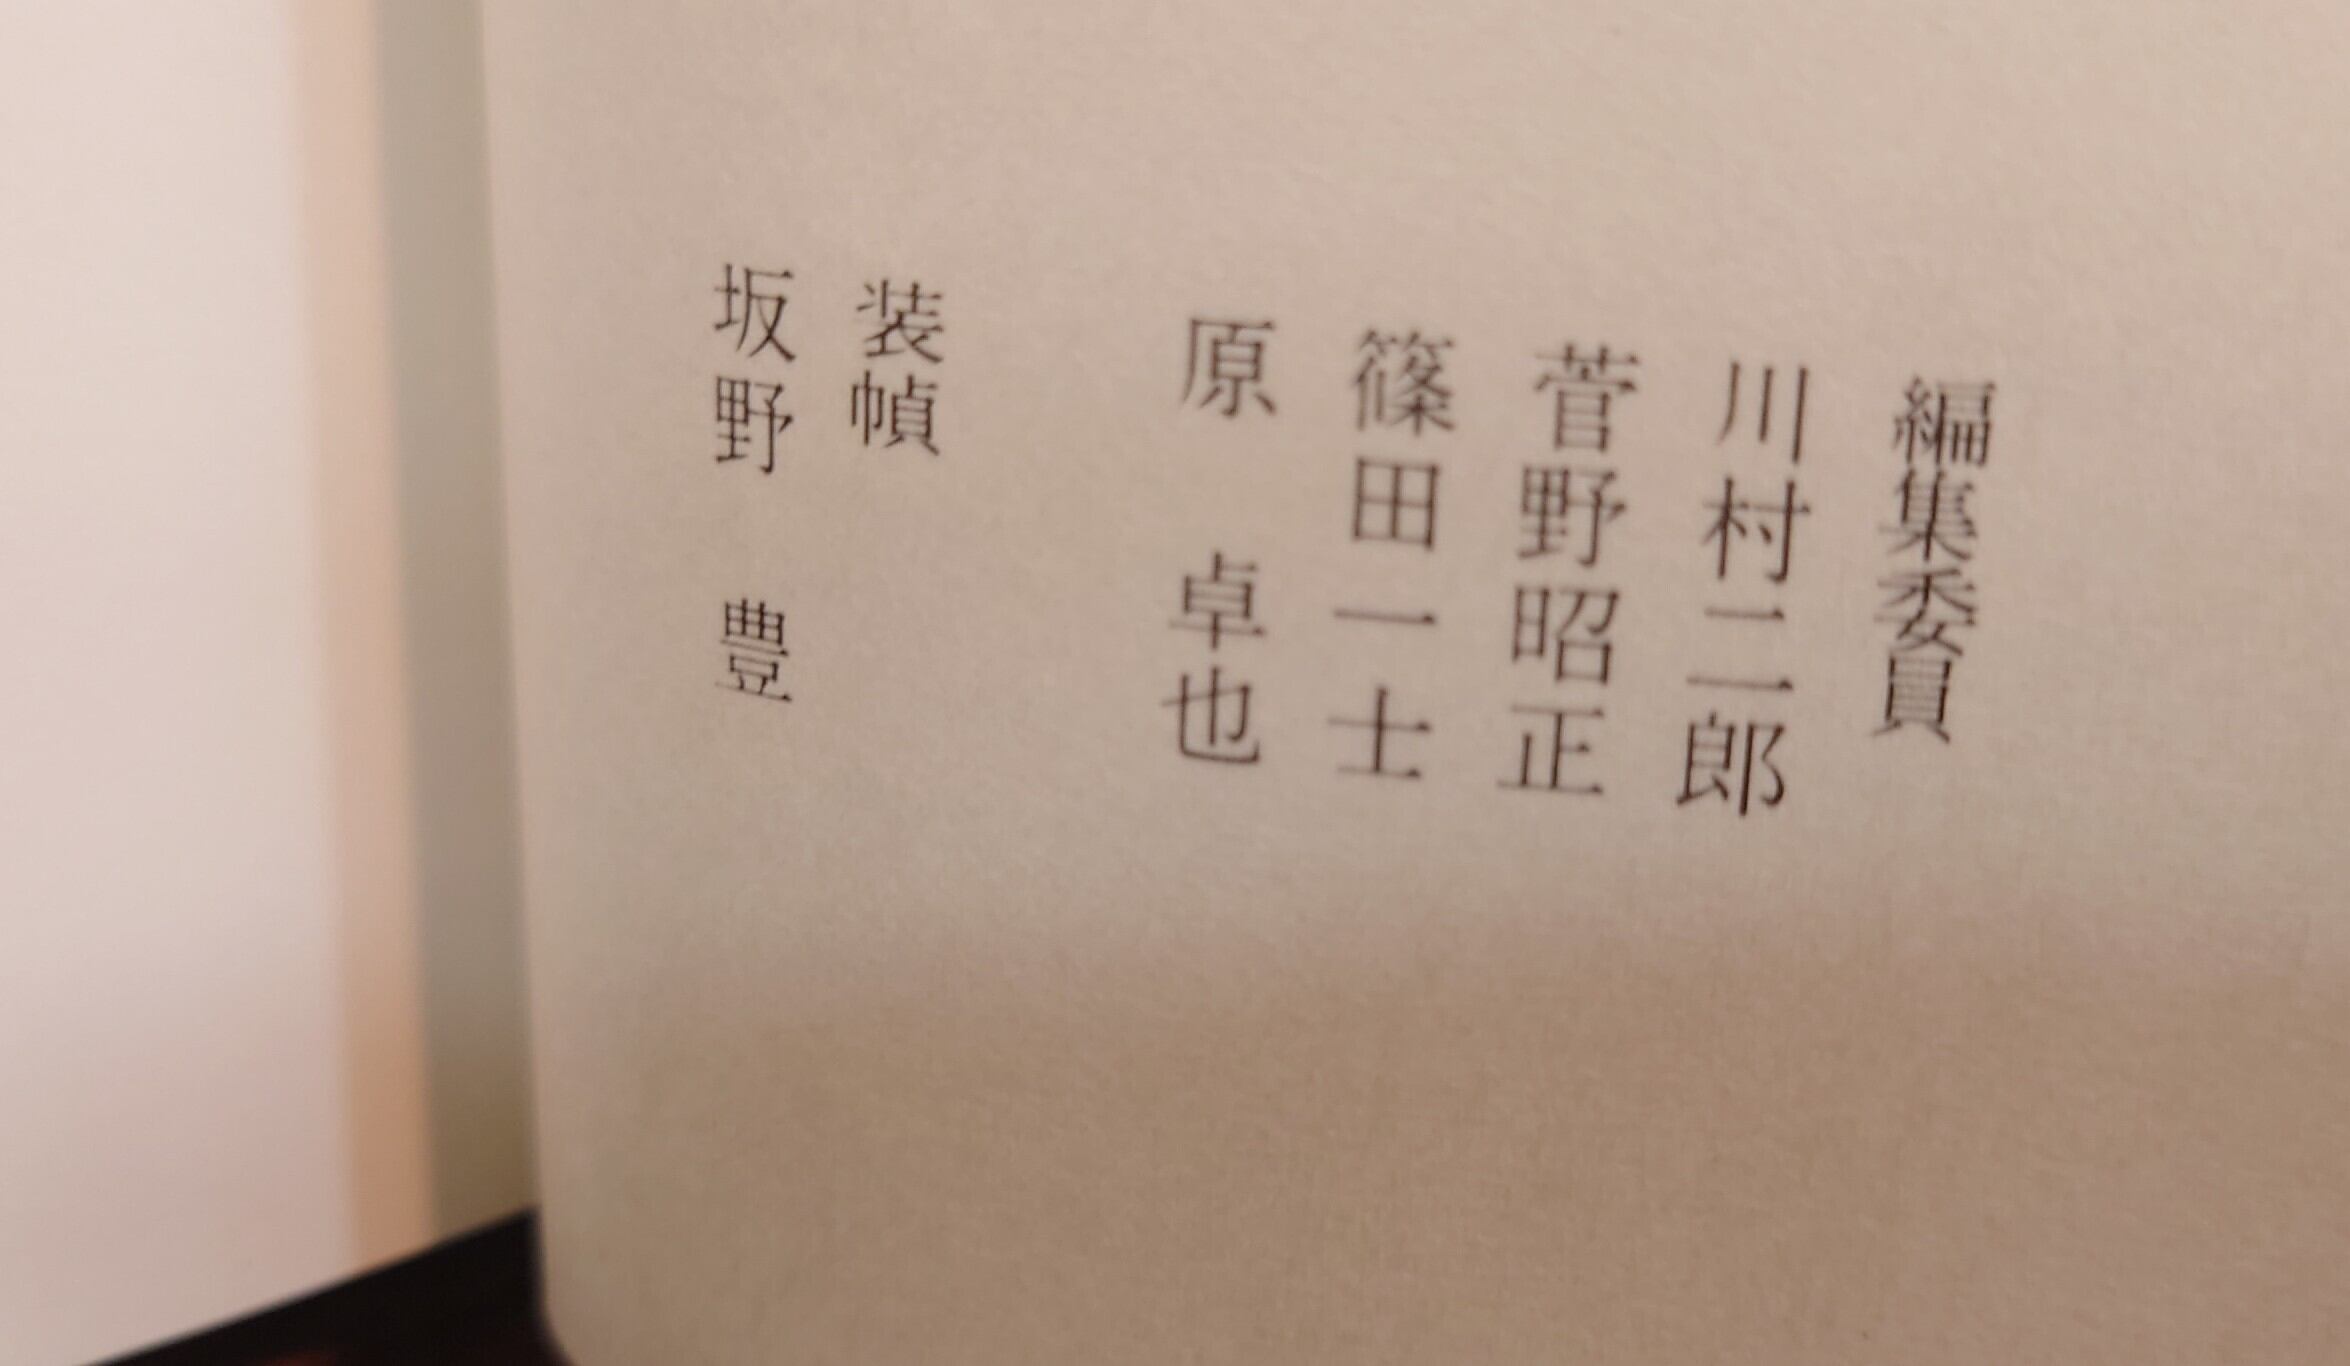 編集委員
川村二郎
菅野昭正
篠田一士
原 卓也
装幀
坂野 豊